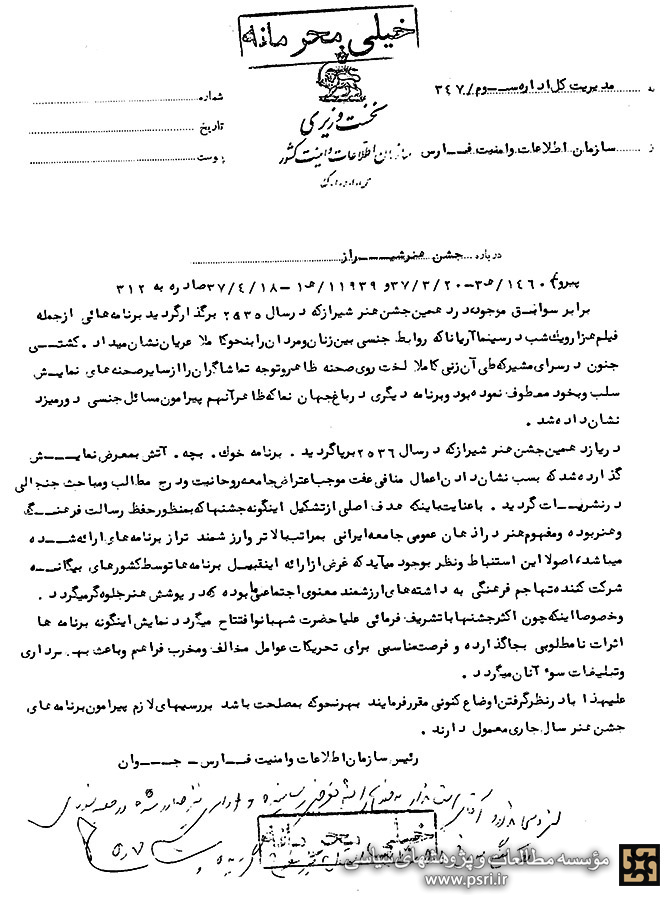 خیلی محرمانه
به مدیریت کل اداره ســـوم/۳۴۷
شماره
نخست وزیری
تاریخ
از سازمان اطلاعات وامنیت فـــارس
سازمان اطلاعات و امنیت کشور
پیوست
درباره جشن هنرشیـــراز
پیرو ۱۴۶۰/ه۳-۳۷/۳/۲۰ و ۱۱۹۳۹/ه۱-۳۷/۴/۱۸ صادره به ۳۱۲
برابر سوابق موجوددردهمین جشن هنر شیرازکه درسال ۲۵۳۵ برگذارگردید برنامه هائی ازجمله
فیلم هزارویکشب درسینماآریاناکه روابط جنسی بین زنان ومردان رابنحوکاملا عریان نشان میداد . کشتـــی
جنون درسرای مشیرکه طی آن زنی کاملا لخت روی صحنه ظاهروتوجه تماشاگران راازسایرصحنه های نمایـــش
سلب وبخود معطوف نموده بود وبرنامه دیگری درباغ جهان نماکه ظاهرآنهم پیرامون مسائل جنسی دورمیزد
نشان داده شد .
دریازدهمین جشن هنر شیرازکه درسال ۲۵۳۶ برپاگردید . برنامه خوک . بچه . آتش بمعرض نمایـــش
گذارده شد که بسبب نشان دادن اعمال منافی عفت موجب اعتراض جامعه روحانیت ودرج مطالب ومباحث جنجالی
درنشریـــات گردید . باعنایت باینکه هدف اصلی ازتشکیل اینگونه جشنهاکه بمنظورحفظ رسالت فرهنـــگی
وهنربوده ومفهوم هنردراذهان عمومی جامعه ایرانی بمراتب بالاتر وارزشمند تراز برنامه های ارائه شـــده
میباشد، اصولا این استنباط ونظر بوجود میآید که غرض ازارائه اینقبیـــل برنامه هاتوسط کشورهای بیگانـــه
شرکت کننده تهاجم فرهنگی به داشته های ارزشمند معنوی اجتماعی ما بوده که درپوشش هنرجلوه گرمیگردد .
وخصوصااینکه چون اکثرجشنهاباتشریف فرمائی علیاحضرت شهبانوافتتاح میگردد نمایش اینگونه برنامه ها
اثرات نامطلوبی بجاگذارده و فرصت مناسبی برای تحریکات عوامل مخالف ومخرب فراهم وباعث بهره برداری
وتبلیغات سوء آنان میگردد .
علیهذا بادرنظرگرفتن اوضاع کنونی مقررفرمایند بهرنحوکه بمصلحت باشد بررسیهای لازم پیرامون برنامه های
جشن هنر سال جاری معمول دارند .
رئیس سازمان اطلاعات وامنیت فـــارس – جـــوان
خیلی محرمانه
مؤسسه مطالعات و پژوهشهای سیاسی
www.psri.ir